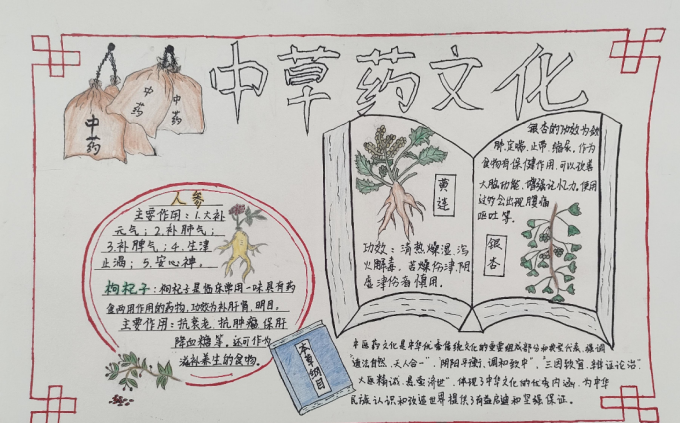 中草药文化
中药
中药
中药
人参
主要作用：1.大补
元气；2.补肺气；
3.补脾气；4.生津
止渴；5.安心神。
枸杞子：枸杞子是临床常用一味具有药
食两用作用的药物，功效为补肝肾，明目。
主要作用：抗衰老，抗肿瘤，保肝
降血糖等。还可作为
滋补养生的食物。
黄连
功效：清热燥湿，泻
火解毒，苦燥伤津，阴
虚津伤者慎用。
银杏的功效为敛
肺，定喘，止带，缩尿。作为
食物有保健作用，可以改善
大脑功能，增强记忆力。使用
过多会出现腹痛
呕吐等。
银杏
本草纲目
中医药文化是中华优秀传统文化的重要组成部分和典型代表，强调
“道法自然、天人合一”，“阴阳平衡，调和致中”，“三因制宜、辩证论治”，
“大医精诚、悬壶济世”，体现了中华文化的优秀内涵，为中华
民族认识和改造世界提供了有益启迪和坚强保证。